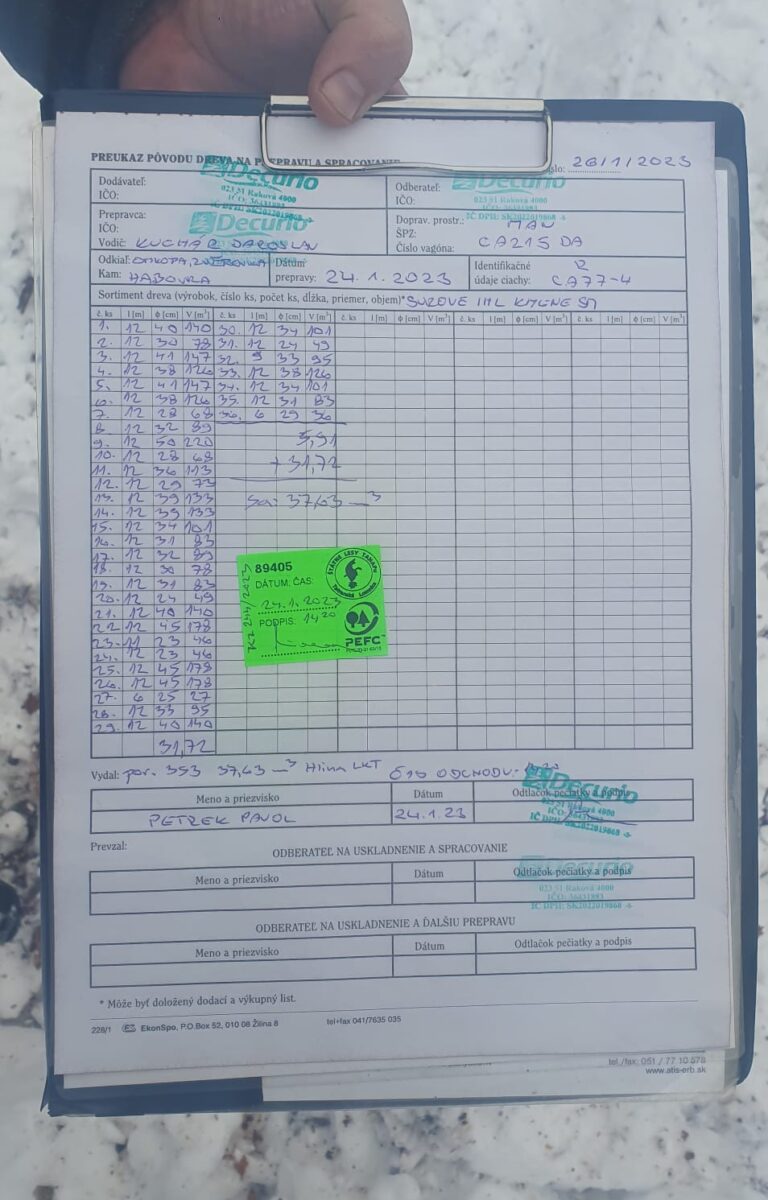 PREUKAZ PÔVODU DREVA NA PREPRAVU A SPRACOVANIE
26/1/2023
Dodávateľ:
IČO:
Decurio
023 51 Raková 4000
IČO: 36431893
Odberateľ:
IČO:
Decurio
023 51 Raková 4000
Prepravca:
IČO:
Decurio
IČ DPH: SK2022019868
Vodič: KUCHÁR JAROSLAV
Doprav. prostr.: MAN
ŠPZ:
Číslo vagóna: CA215 DA
Odkiaľ: ZVEROVKA
Kam: HABOVKA
Dátum
prepravy: 24.1.2023
Identifikačné
údaje ciachy: CA77-4
Sortiment dreva (výrobok, číslo ks, počet ks, dĺžka, priemer, objem)*
č. ks l [m] ϕ [cm] V [m³] č. ks l [m] ϕ [cm] V [m³] č. ks l [m] ϕ [cm] V [m³] č. ks l [m] ϕ [cm] V [m³] č. ks l [m] ϕ [cm] V [m³]
1. 12 40 140 30. 12 34 101
2. 12 30 78 31. 12 24 49
3. 12 41 147 32. 9 33 95
4. 12 38 126 33. 12 38 126
5. 12 41 147 34. 12 34 101
6. 12 38 126 35. 12 31 83
7. 12 28 68 36. 6 29 36
8. 12 32 89
9. 12 50 220 5,91
10. 12 28 68 + 31,72
11. 12 36 113
12. 12 29 73
13. 12 39 133 Sa: 37,63 m³
14. 12 39 133
15. 12 34 101
16. 12 31 83
17. 12 32 89
18. 12 30 78
19. 12 31 83
20. 12 24 49
21. 12 40 140
22. 12 45 178
23. 11 23 46
24. 12 23 46
25. 12 45 178
26. 12 45 178
27. 6 25 27
28. 12 33 95
29. 12 40 140
31,72
89405
DÁTUM: ČAS:
24.1.2023
PODPIS: 14 20
ŠTÁTNE LESY TANAPU
PEFC
Vydal: por. 353 37,63 m³ Hlina LKT ČAS ODCHODU:
Decurio
023 51 Raková 4000
IČ DPH: SK2022019868
Meno a priezvisko Dátum Odtlačok pečiatky a podpis
PETREK PAVOL 24.1.23
Prevzal:
ODBERATEĽ NA USKLADNENIE A SPRACOVANIE
Decurio
023 51 Raková 4000
IČO: 36431893
IČ DPH: SK2022019868
Meno a priezvisko Dátum Odtlačok pečiatky a podpis
ODBERATEĽ NA USKLADNENIE A ĎALŠIU PREPRAVU
Meno a priezvisko Dátum Odtlačok pečiatky a podpis
* Môže byť doložený dodací a výkupný list.
228/1 EkonSpo, P.O.Box 52, 010 08 Žilina 8 tel+fax 041/7635 035
tel./fax: 051 / 77 10 578
www.atis-erb.sk